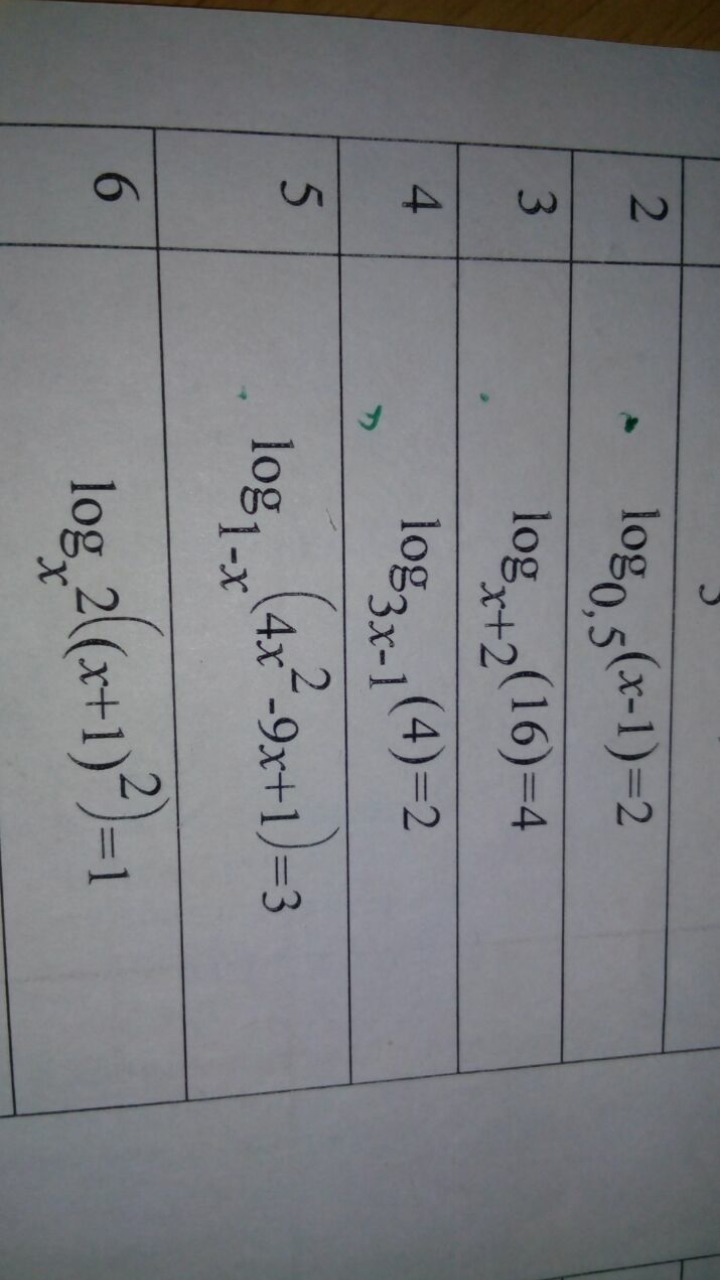 2 log₀,₅(x-1)=2
3 logₓ₊₂(16)=4
4 log₃ₓ₋₁(4)=2
5 log₁₋ₓ(4x²-9x+1)=3
6 logₓ2((x+1)²)=1